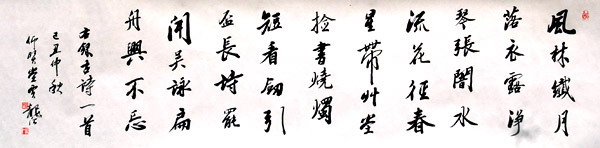 風林纖月
落衣露淨
琴張闇水
流花徑春
星帶艸堂
撿書燒燭
短看劒引
盃長詩罷
聞吳詠扁
舟興不忘
右錄古詩一首
己丑仲秋